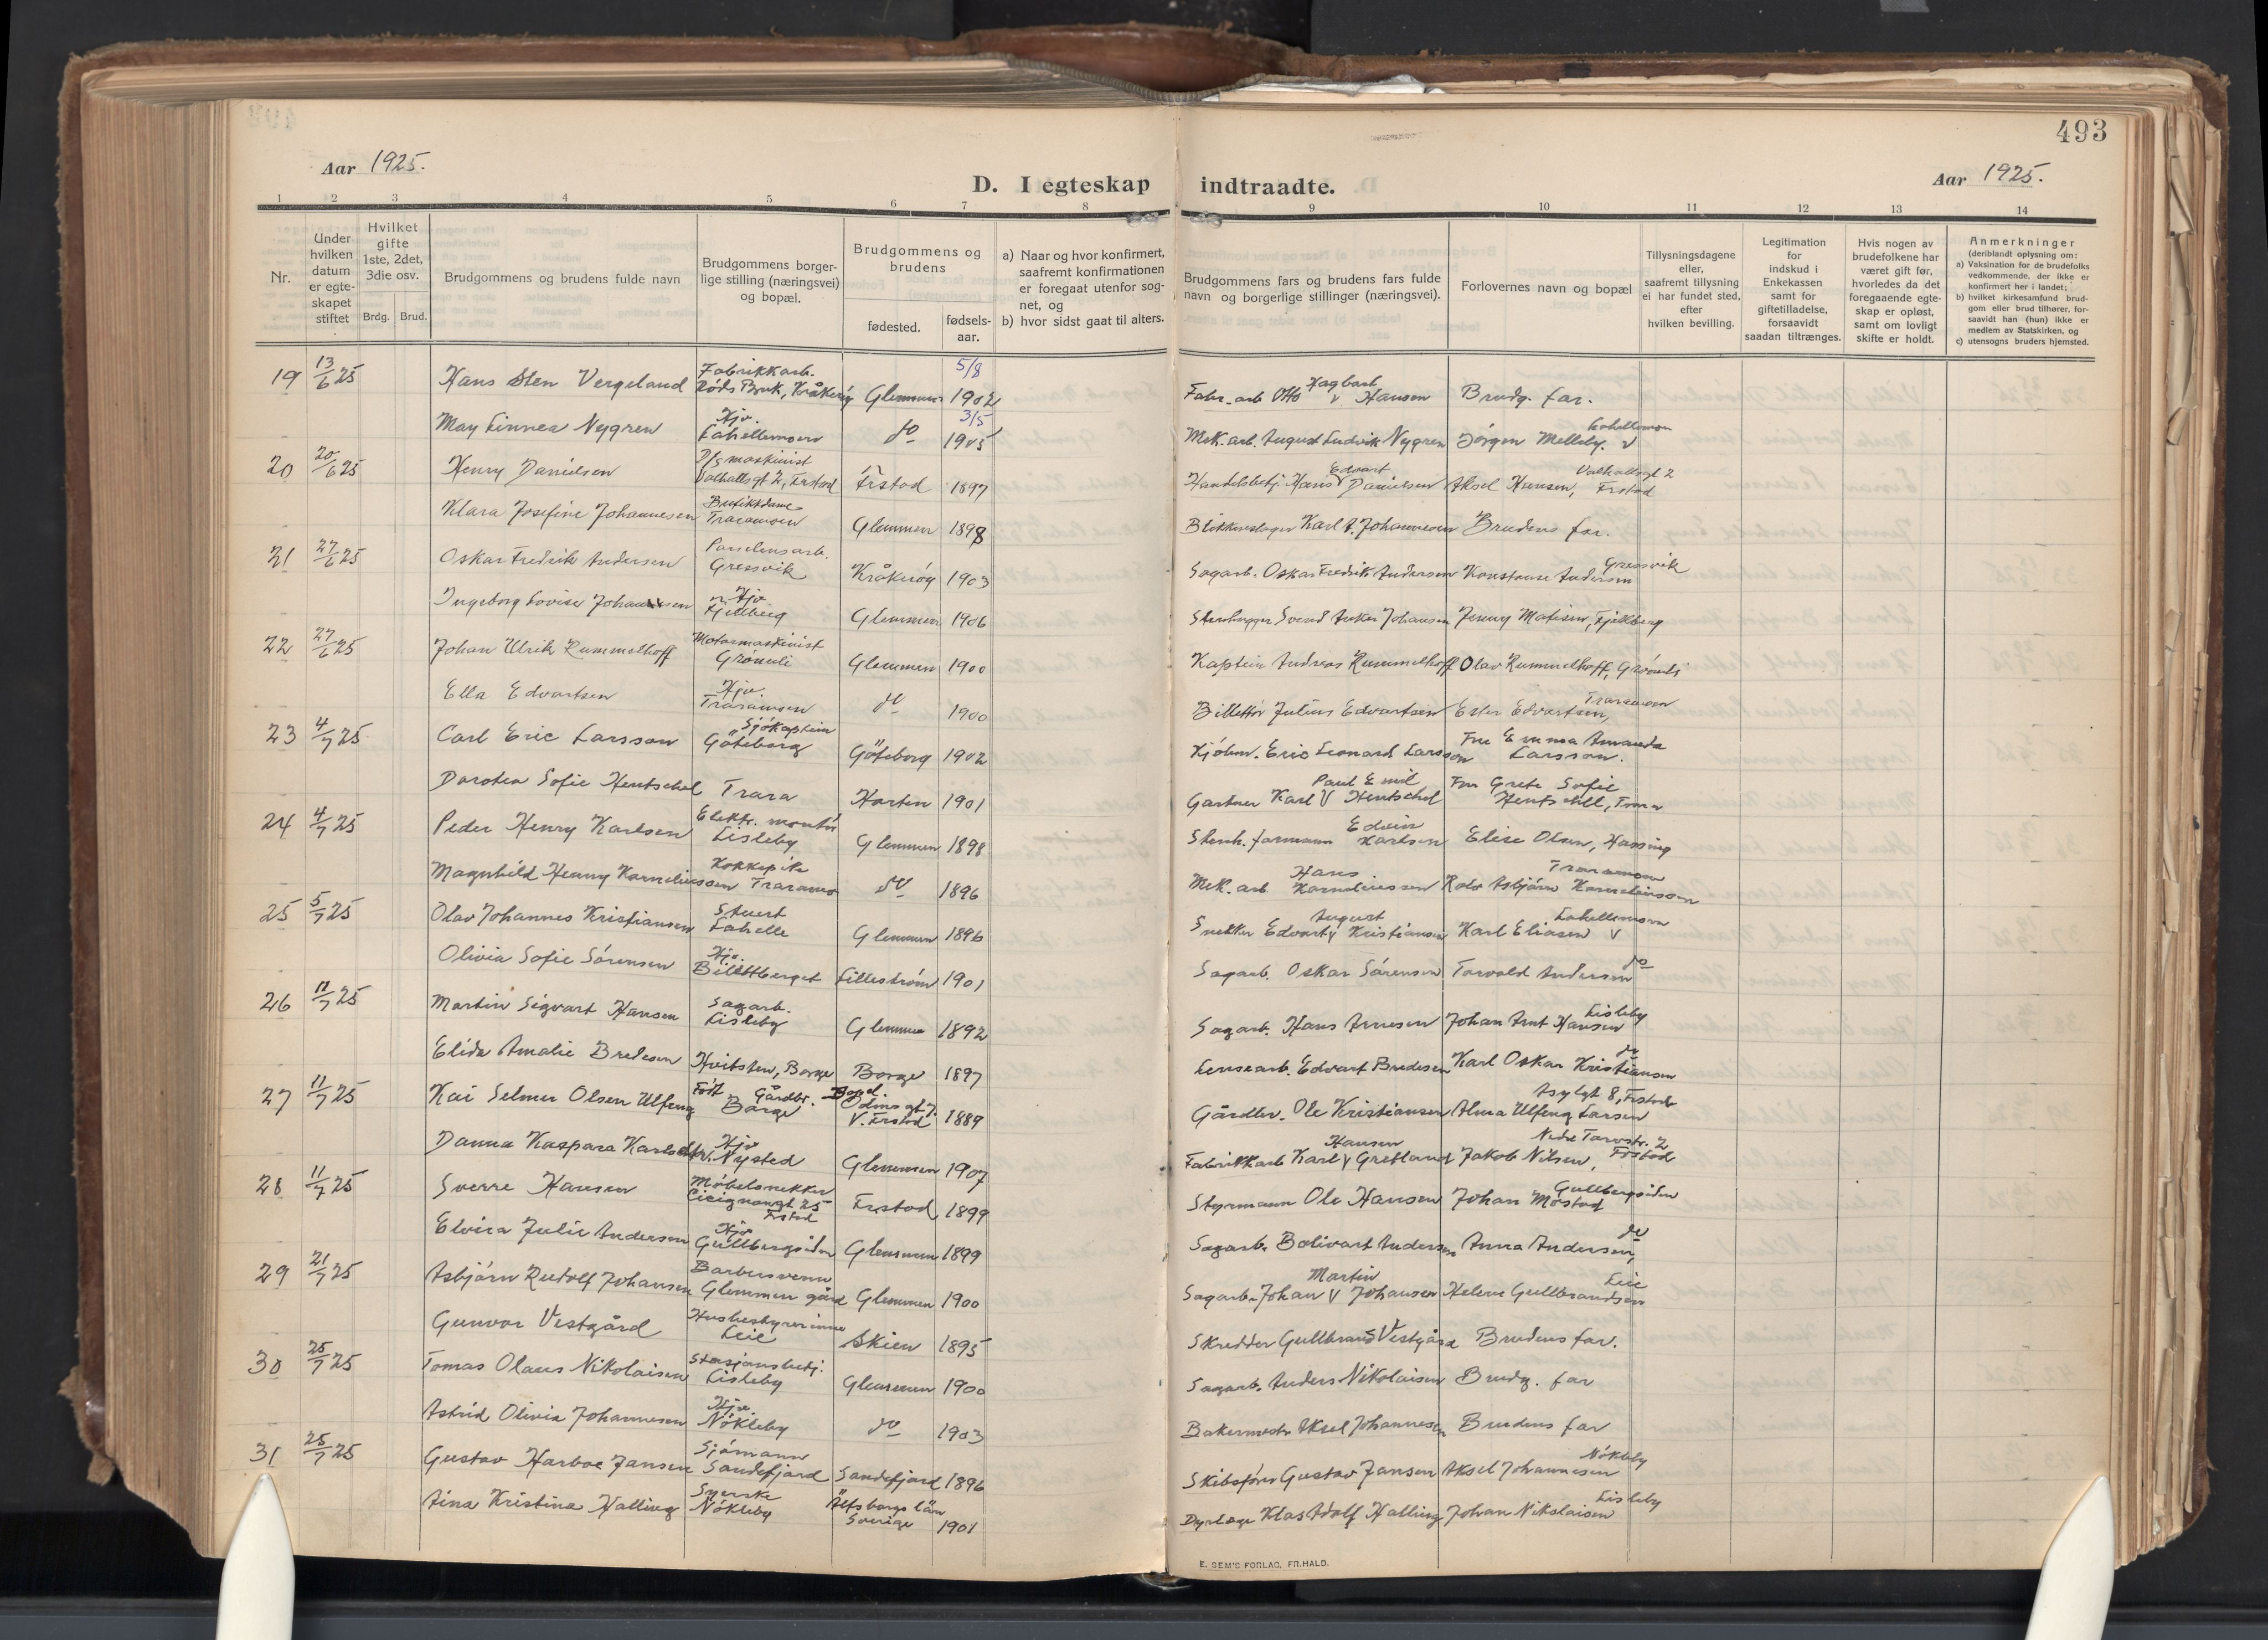 493
Aar 1925.
D. I egteskap indtraadte.
Aar 1925.
1 2 3 4 5 6 7 8 9 10 11 12 13 14
Nr.
Under hvilken datum er egteskapet stiftet
Hvilket gifte 1ste, 2det, 3die osv.
Brdg. Brud.
Brudgommens og brudens fulde navn
Brudgommens borgerlige stilling (næringsvei) og bopæl.
Brudgommens og brudens
fødested. fødselsaar.
a) Naar og hvor konfirmert, saafremt konfirmationen er foregaat utenfor sognet, og
b) hvor sidst gaat til alters.
Brudgommens fars og brudens fars fulde navn og borgerlige stillinger (næringsvei).
Forlovernes navn og bopæl
Tillysningsdagene eller, saafremt tillysning ei har fundet sted, efter hvilken bevilling.
Legitimation for indskud i Enkekassen samt for giftetilladelse, forsaavidt saadan tiltrænges.
Hvis nogen av brudefolkene har været gift før, hvorledes da det foregaaende egteskap er opløst, samt om lovligt skifte er holdt.
Anmerkninger
(deriblandt oplysning om:
a) Vaksination for de brudefolks vedkommende, der ikke er konfirmert her i landet;
b) hvilket kirkesamfund brudgom eller brud tilhører, forsaavidt han (hun) ikke er medlem av Statskirken, og
c) utensogns bruders hjemsted.
19 13/6 25 Hans Sten Vergeland Fabrikkarb. Röds Bruk, Kråkeröy Glemmen 5/8 1902 Fabr. arb Otto Hagbart Hansen Brudg. far.
May Linnea Nygren Hjv. Lahellemoen do 3/5 1905 Mek. arb. August Ludvik Nygren Jørgen Melleby. Lahellemoen
20 20/6 25 Henry Danielsen D/s maskinist Valhallsgt 2, Frstad Frstad 1897 Handelsbetj. Hans Edvart Danielsen Aksel Hansen, Valhallsgt 2 Frstad
Klara Josefine Johannesen Butikkdame Traramoen Glemmen 1898 Blikkenslager Karl A. Johannesen Brudens far.
21 27/6 25 Oskar Fredrik Andersen Porselensarb. Gressvik Kråkeröy 1903 Sagarb. Oskar Fredrik Andersen Konstanse Andersen Gressvik
Ingeborg Lovise Johansen Hjv Fjellberg Glemmen 1906 Stenhugger Svend Anker Johansen Jenny Matisen, Fjellberg
22 27/6 25 Johan Ulrik Rummelhoff Motormaskinist Grönnli Glemmen 1900 Kaptein Andreas Rummelhoff Olav Rummelhoff, Grönnli
Ella Edvartsen Hjv. Traramoen do 1900 Billettör Julius Edvartsen Ester Edvartsen, Traramoen
23 4/7 25 Carl Eric Larsson Sjökaptein Göteborg Göteborg 1902 Kjöbm. Eric Leonard Larsson Fru Emma Amanda Larsson.
Dorotea Sofie Hentschel Trara Horten 1901 Gartner Karl Paul Emil Hentschel Fru Grete Sofie Hentschel, Trara
24 4/7 25 Peder Henry Karlsen Elektr. montör Lisleby Glemmen 1898 Stenh. formann Edvin Karlsen Elise Olsen, Hassing
Magnhild Henny Korneliussen Kokkepike Traramoen do 1896 Mek. arb Hans Korneliussen Rolv Asbjörn Korneliussen Traramoen
25 5/7 25 Olav Johannes Kristiansen Stuert Lahelle Glemmen 1896 Snekker Edvart August Kristiansen Karl Eliasen Lahellemoen
Olivia Sofie Sörensen Hjv. Billettberget Lilleström 1901 Sagarb. Oskar Sörensen Torvald Andersen do
26 11/7 25 Martin Sigvart Hansen Sagarb. Lisleby Glemmen 1892 Sagarb. Hans Arnesen Johan Arnt Hansen Lisleby
Elida Amalie Bredesen Hvitsten, Borge Borge 1897 Lensearb. Edvart Bredesen Karl Oskar Kristiansen do
27 11/7 25 Kai Selmer Olsen Ulfeng Födt Gårdbr. Borge Bopel. V. Frstad 1889 Gårdbr. Ole Kristiansen Alma Ulfeng Larsen Asylgt 8, Frstad
Danna Kaspara Karlsdtr. Hjv Nysted Glemmen 1907 Fabrikkarb Karl Hansen Gretland Jakob Nilsen, Nedre Torvstr. 2 Frstad
28 11/7 25 Sverre Hansen Möbelsnekker Cicignongt 25 Frstad Frstad 1899 Styrmann Ole Hansen Johan Mörstad Gullbergsiden
Elvira Julie Andersen Hjv Gullbergsiden Glemmen 1899 Sagarb. Bolivart Andersen Anna Andersen, do
29 21/7 25 Asbjörn Rudolf Johansen Barbersvenn Glemmen gård Glemmen 1900 Sagarb. Johan Martin Johansen Helene Gullbrandsen Leie
Gunvor Vestgård Husbestyrerinne Leie Skien 1895 Skredder Gullbrand Vestgård Brudens far.
30 25/7 25 Tomas Olaus Nikolaisen Stasjonsbetj. Lisleby Glemmen 1900 Sagarb. Anders Nikolaisen Brudg. far
Astrid Olivia Johannesen Hjv. Nökleby do 1903 Bakermestr Aksel Johannesen Brudens far
31 25/7 25 Gustav Harboe Jansen Sjömann Sandefjord Sandefjord 1896 Skibsförer Gustav Jansen Aksel Johannesen Nökleby
Aina Kristina Halling Syerske Nökleby Älfsborgs län Sverige 1901 Dyrlæge Klas Adolf Halling Johan Nikolaisen Lisleby
E. SEM'S FORLAG, FR.HALD.